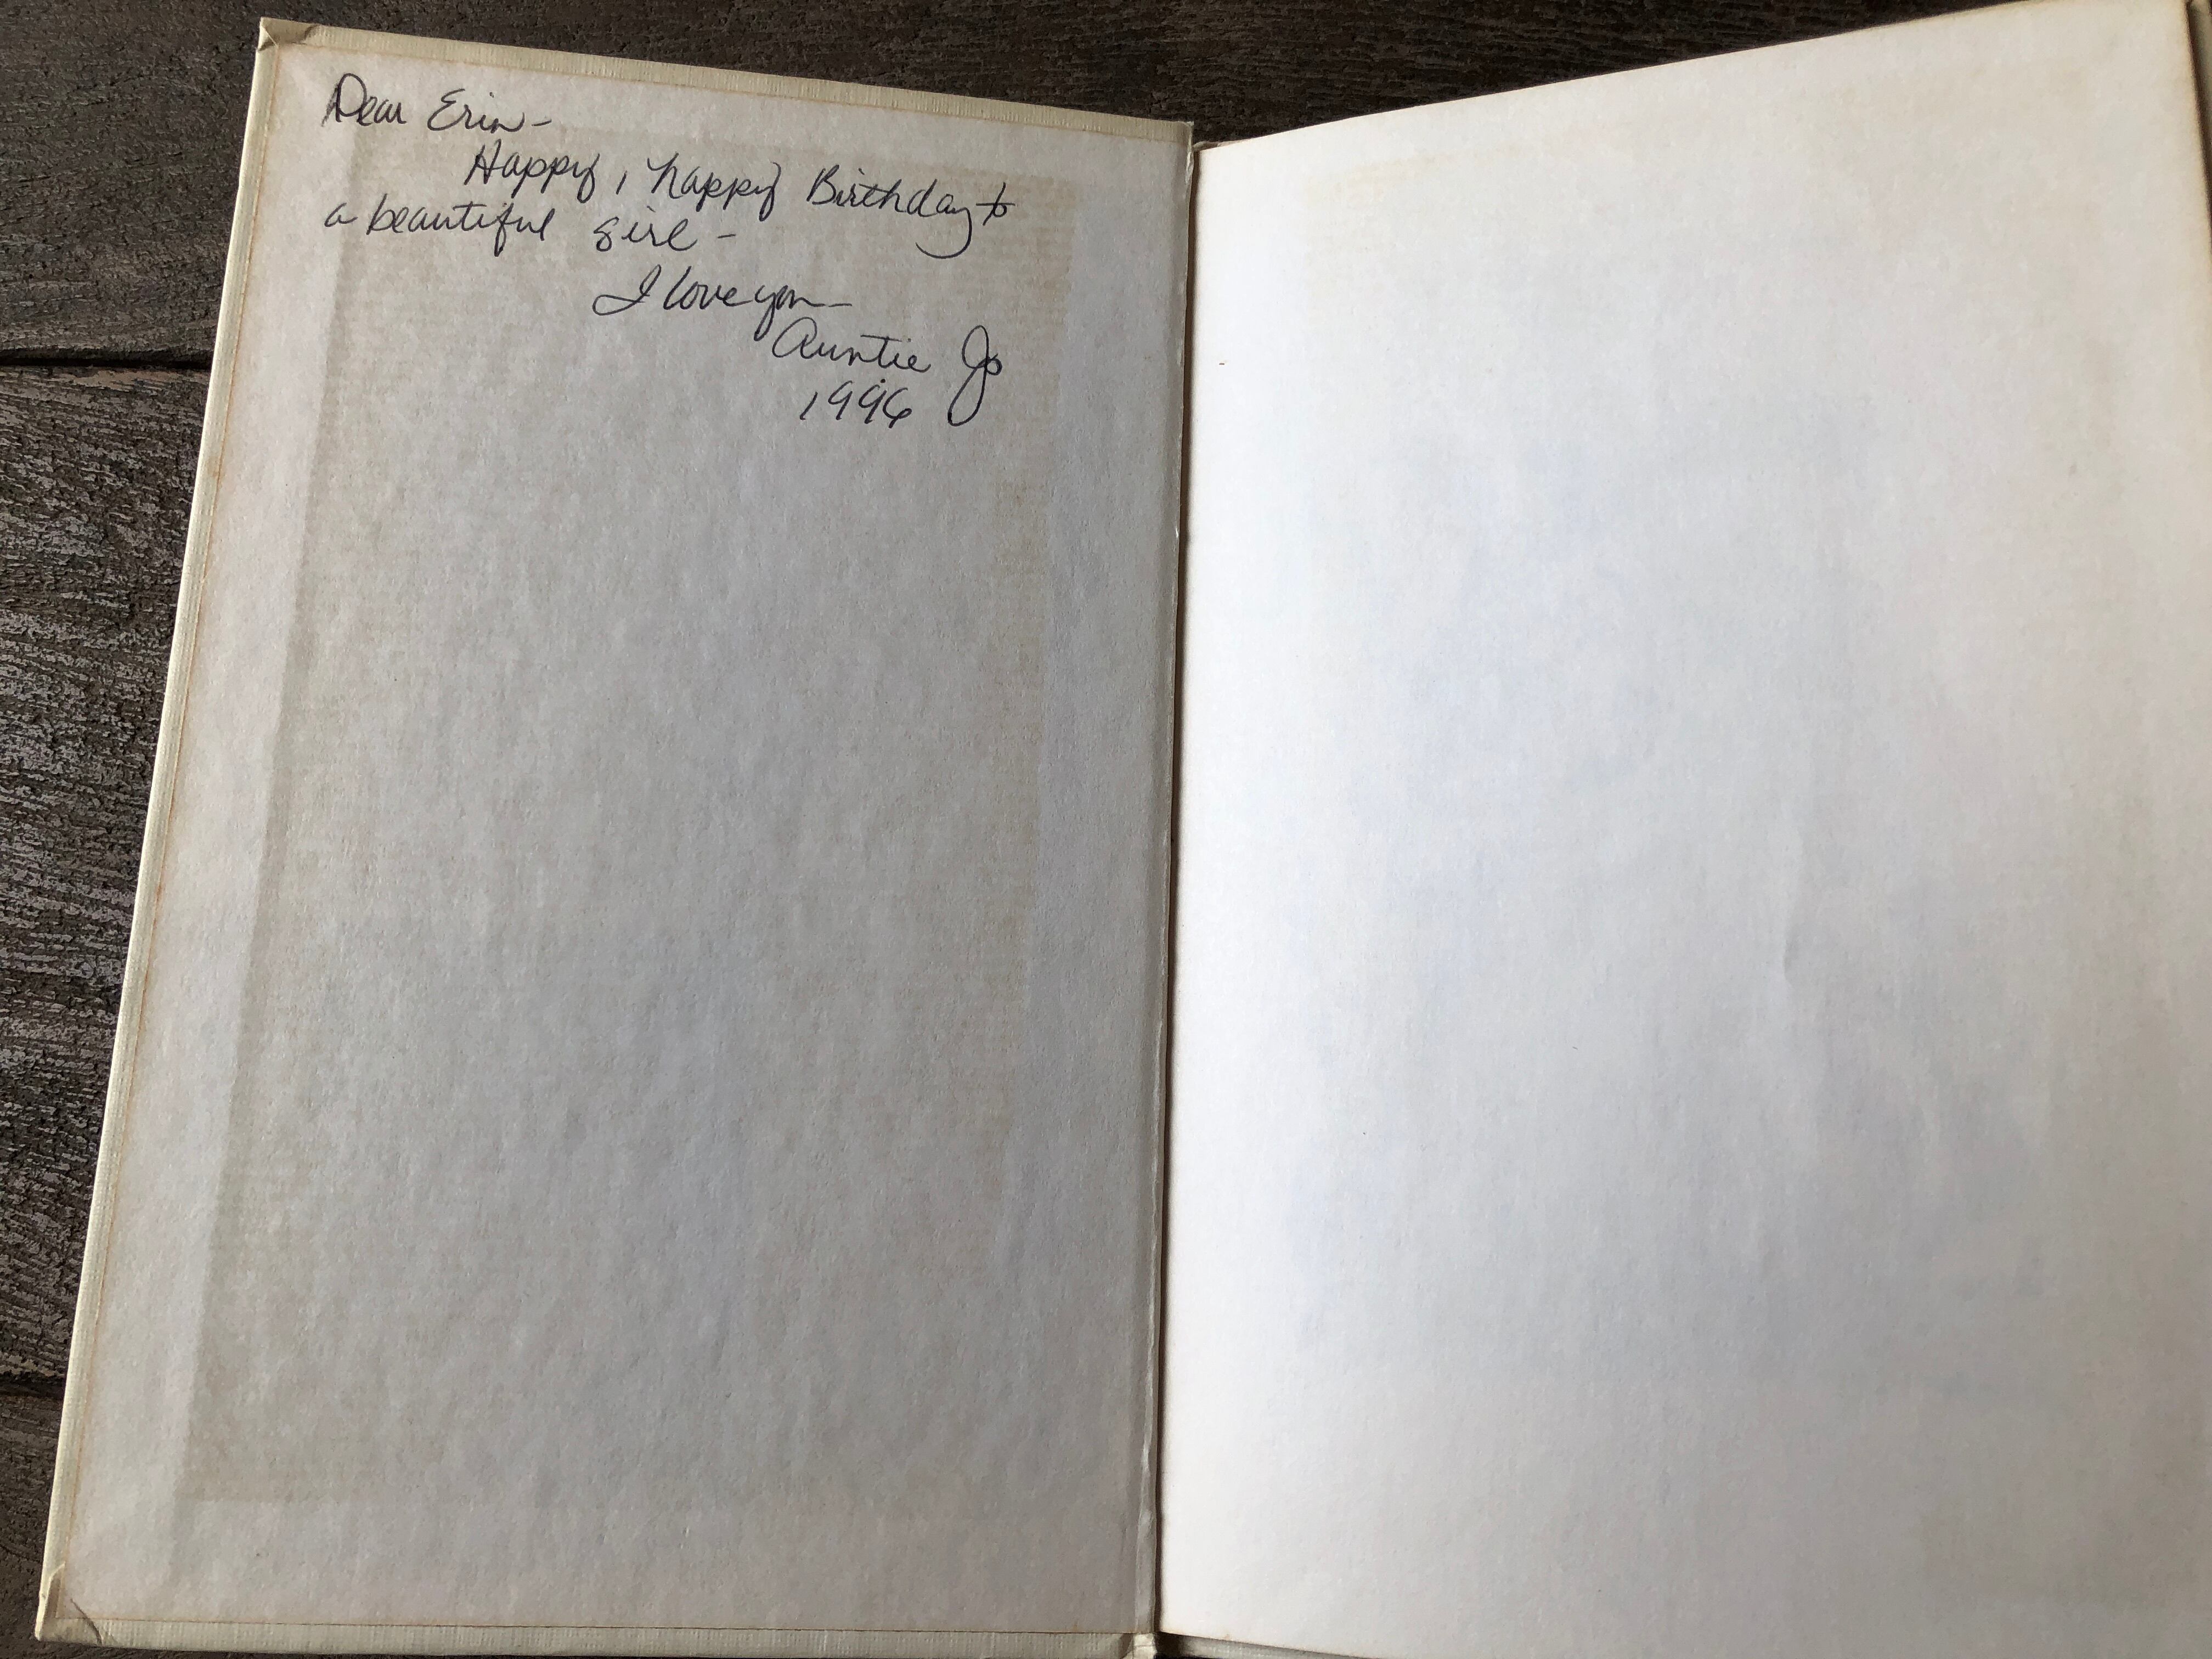 Dear Erin-
Happy, happy Birthday to
a beautiful girl-
I love you-
Auntie Jo
1996